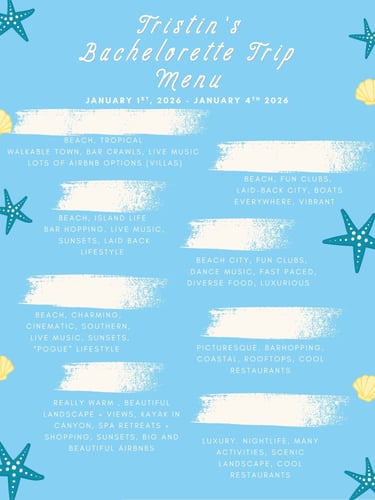 Tristin's
Bachelorette Trip
Menu
JANUARY 1ST, 2026 - JANUARY 4TH 2026
BEACH, TROPICAL
WALKABLE TOWN, BAR CRAWLS, LIVE MUSIC
LOTS OF AIRBNB OPTIONS (VILLAS)
BEACH, FUN CLUBS,
LAID-BACK CITY, BOATS
EVERYWHERE, VIBRANT
BEACH, ISLAND LIFE
BAR HOPPING, LIVE MUSIC,
SUNSETS, LAID BACK
LIFESTYLE
BEACH CITY, FUN CLUBS,
DANCE MUSIC, FAST PACED,
DIVERSE FOOD, LUXURIOUS
BEACH, CHARMING,
CINEMATIC, SOUTHERN,
LIVE MUSIC, SUNSETS,
"POGUE" LIFESTYLE
PICTURESQUE, BARHOPPING,
COASTAL, ROOFTOPS, COOL
RESTAURANTS
REALLY WARM , BEAUTIFUL
LANDSCAPE + VIEWS, KAYAK IN
CANYON, SPA RETREATS +
SHOPPING, SUNSETS, BIG AND
BEAUTIFUL AIRBNBS
LUXURY, NIGHTLIFE, MANY
ACTIVITIES, SCENIC
LANDSCAPE, COOL
RESTAURANTS